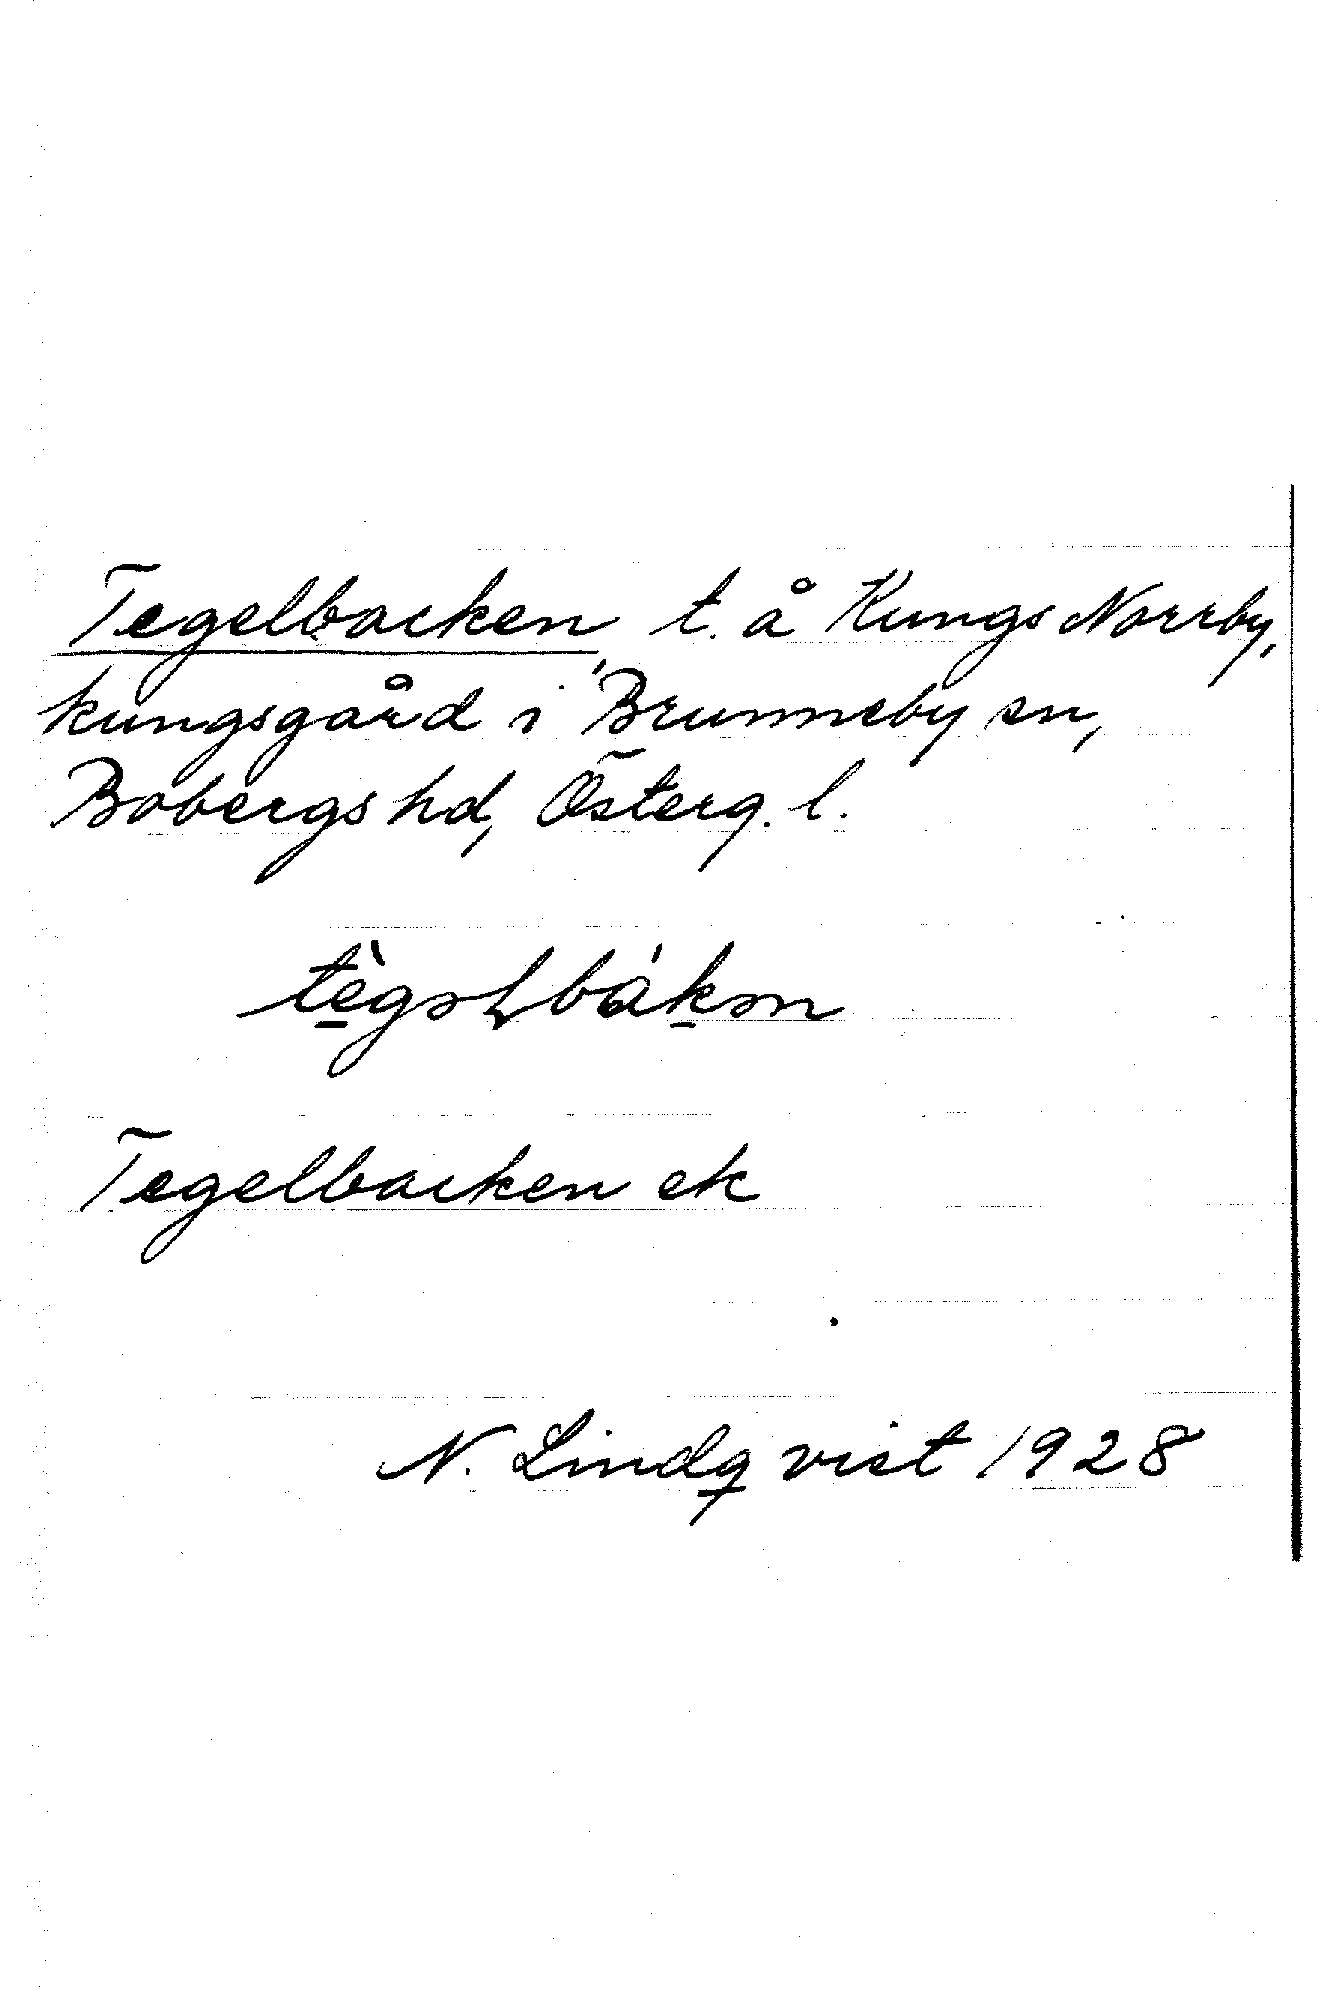 Tegelbacken t. å Kungs Norrby,
kungsgård i Brunneby sn,
Bobergs hd, Österg. l.
tè̠gəɫbák̠ən
Tegelbacken ek
N. Lindqvist 1928